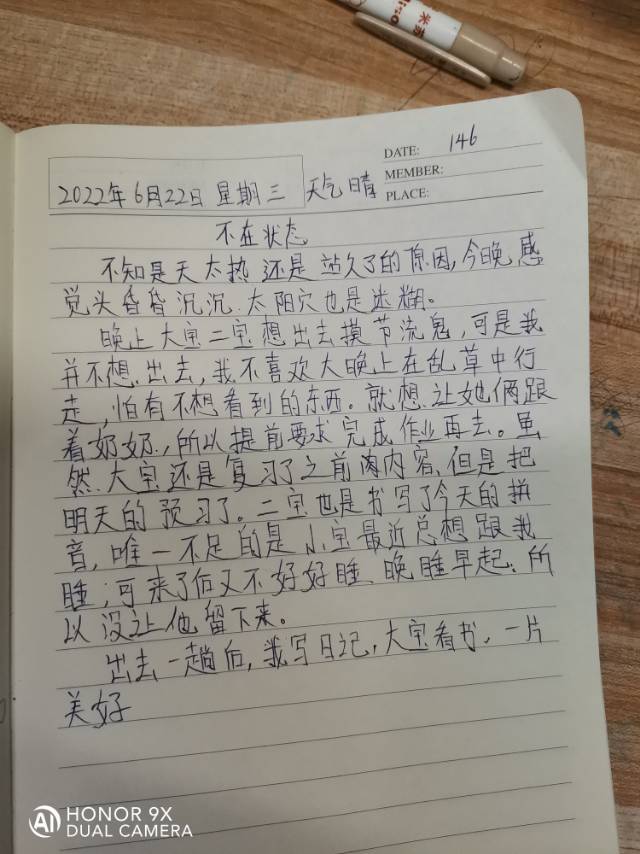 米菲
DATE: 146
MEMBER:
PLACE:
2022年6月22日 星期三 天气晴
不在状态
不知是天太热还是站久了的原因,今晚感
觉头昏昏沉沉.太阳穴也是迷糊。
晚上大宝二宝想出去摸节流鬼,可是我
并不想.出去,我不喜欢大晚上在乱草中行
走,怕有不想看到的东西。就想.让她俩跟
着奶奶.,所以提前要求完成作业再去。虽
然.大宝还是复习了之前的内容.但是把
明天的预习了。二宝也是书写了今天的拼
音,唯一不足的是小宝最近总想跟我
睡;可来了后又不好好睡.晚睡早起;所
以没让他留下来。
出去一趟后,我写日记,大宝看书.一片
美好
AI HONOR 9X
DUAL CAMERA